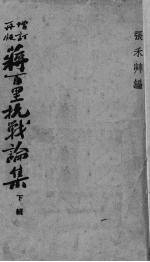 張禾艸編
增訂
再版
蔣百里抗戰論集
下輯